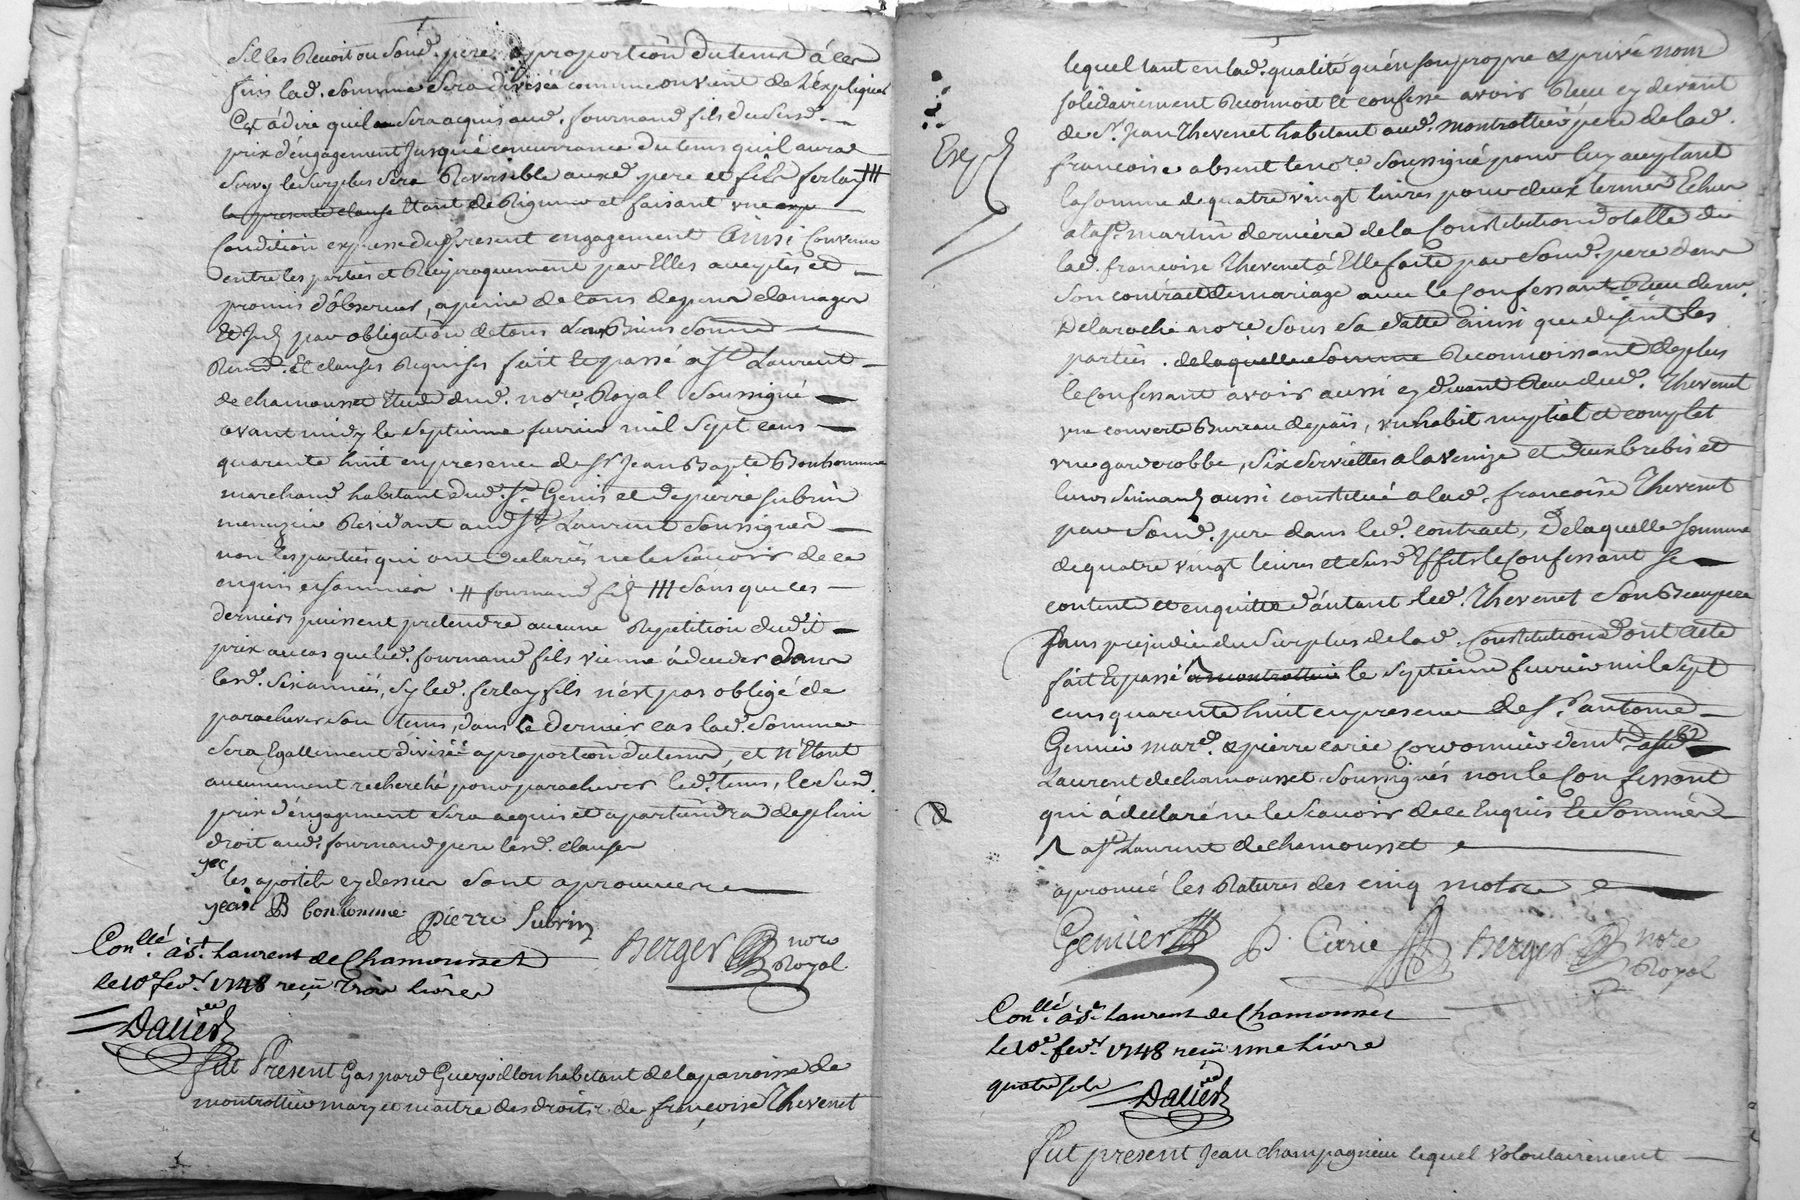 Sil les Reçoit ou Sond. pere a proportion du tems à ces
fins lad. Somme Sera divisée comme on vient de L'expliquer
C'est à dire quil Sera acquis aud. fournand fils du Susd.
prix d'engagement Jusqu'à concurrance du tems quil aurat
Servy le Surplus Sera Reversible auxd. pere et fils ferlay ///
la presente clause Etant de Rigueur et faisant une
Condition expresse du present engagement Ainsi Convenu
entre les parties et Reciproquement par Elles acceptés et
promis d'observer, a peine de tous depens domages
Et Jnts par obligation de tous Leurs Biens Soumis
Renon. Et clauses Requises fait Et passé a St Laurent
de chamousset Etude dud. nore. Royal Soussigné
avant midy le Septieme fevrier mil Sept cens
quarente huit en presence de Sr Jean Bapte Bonhomme
marchand habitant dud. St. Genis et de pierre Subrin
menuzier Residant aud. St Laurent Soussignés
non les parties qui ont declarés ne le Scavoir de ce
enquis et sommés . // fournand fils /// Sans que les
derniers puissent pretendre aucune Repetition dudit
prix au cas que led. fournand fils vienne à deceder dans
lesd. Six années, Sy led. ferlay fils n'est pas obligé de
parachever Son tems, dans le dernier cas lad. Somme
Sera Egallement divisée a proportion du tems, et n'Etant
aucunement recherché pour parachever led. tems, le Susd.
prix d'engagement Sera acquis et apartiendra de plein
droit aud. fournand pere lesd. clauses
les apostils cy dessus Sont aprouvere
jean B bonhomme pierre Subrin
Berger nore Royal
Conllé. à St. Laurent de Chamousset
le 10e fevr. 1748 reçu Trois Livres
Dalier
fut Present Gaspard Guerpillon habitant de la parroisse de
montrottier mary et maitre des droits de françoise Thevenet
lequel tant en lad. qualité qu'en son propre & privé nom
solidairement Reconnoit Et confesse avoir Receu cy devant
de Sr. Jean Thevenet habitant aud. montrottier pere de lad.
françoise absent le nore. Soussigné pour luy acceptant
la Somme de quatre vingt livres pour deux termes Echus
a la St. martin derniere de la Constitution dotalle de
lad. françoise Thevenet à Elle faite par Sond. pere dans
Son contract de mariage avec le Confessant Receu de me.
Delaroche nore Sous Sa datte ainsi que disent les
parties. de laquelle Somme Reconnoissant de plus
le Confessant avoir aussi cy devant Receu dud. Thevenet
une couverte Bureau de païs, un habit nuptial et complet
une garderobbe, Six Serviettes a la venize et deux brebis et
leurs Suivants aussi constitué a lad. françoise Thevenet
par Sond. pere dans led. contract, De laquelle Somme
de quatre vingt livres et Susd. Effets le Confessant Se
content et en quitte d'autant led. Thevenet Son Beaupere
Sans prejudice du Surplus de lad. Constitution dont acte
fait Et passé a montrottier le Septieme fevrier mil Sept
cens quarente huit en presence de Sr. antoine
Genier mard. & pierre carie Cordonnier dud.
Laurent de chamousset Soussignés non le Confessant
qui à declaré ne le Scavoir de ce Enquis Et Sommé
a St. Laurent de chamousset
aprouvé les Ratures des cinq mots
Genier P. Cirrie Berger nore Royal
Conllé. à St. Laurent de Chamousset
le 10e. fevr. 1748 reçu une Livre
quatre sols Dalier
fut present Jean champagnieu lequel volontairement